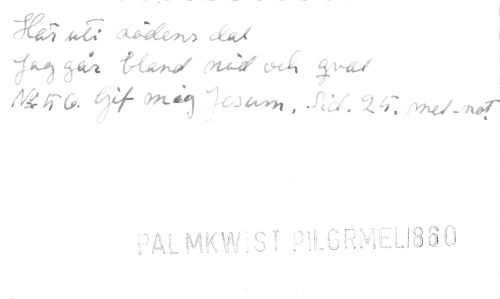 Här uti dödens dal
Jag går bland nöd och qval
N:r 56. Gif mig Jesum. Sid. 25. mel-not.
PALMKWIST PILGRMEL1860